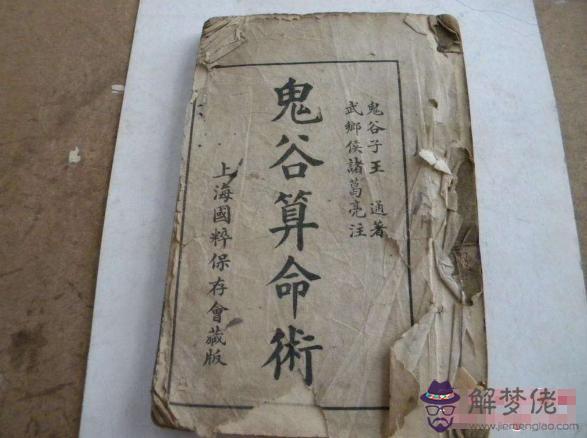 鬼谷子王通著
武鄉侯諸葛亮注
鬼谷算命術
上海國粹保存會藏版
解梦佬
www.jiemenglao.com